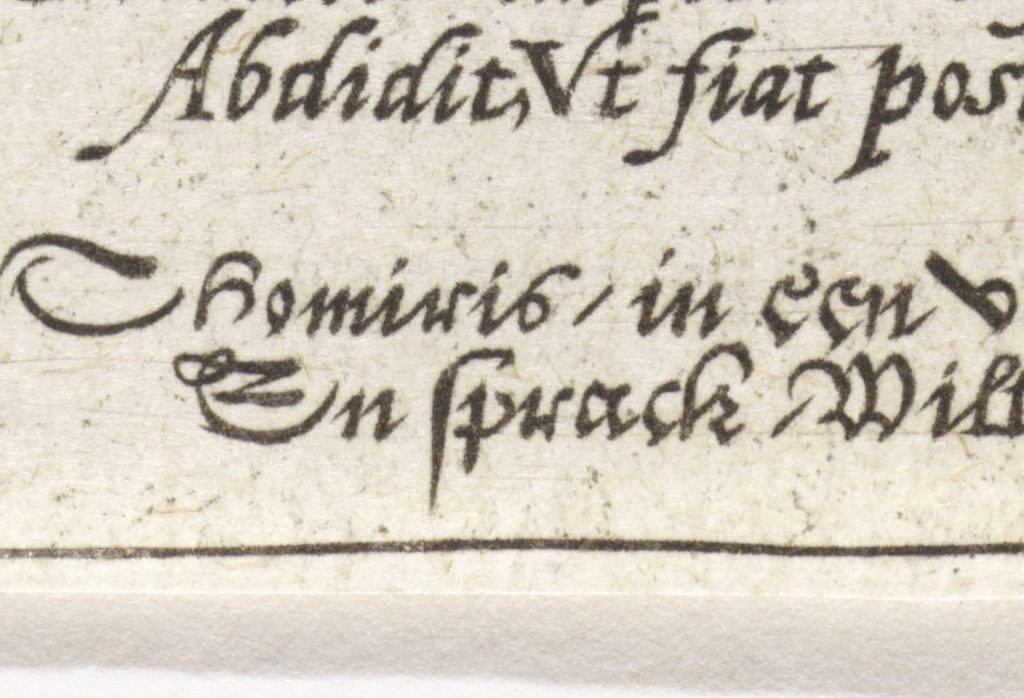 Abdidit, Vt fiat pos
Thomiris / in een v
En sprack / Will